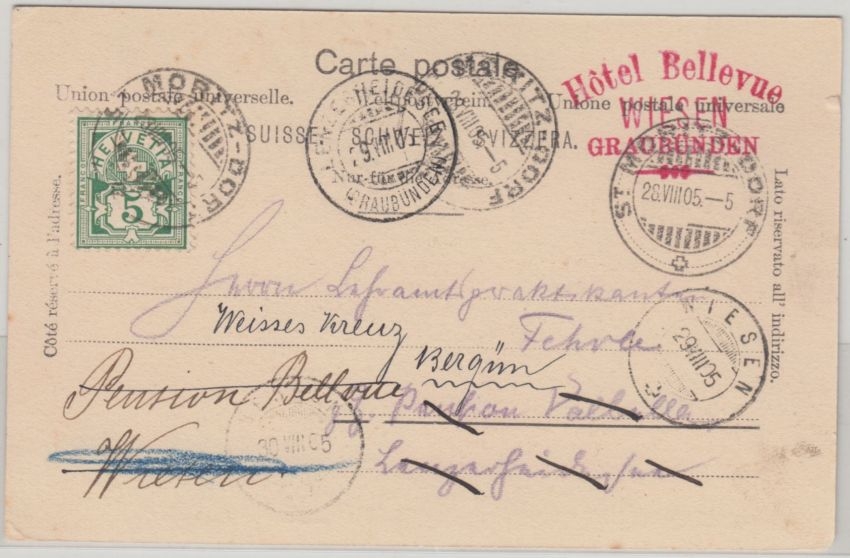 Carte postale
Union postale universelle. Weltpostverein. Unione postale universale
SUISSE. SCHWEIZ. SVIZZERA.
Nur für die Adresse.
Côté réservé à l'adresse.
Lato riservato all' indirizzo.
FRANCO
HELVETIA
5
ST. MORITZ-DORF
LENZERHEIDE
29.VIII.05
(GRAUBÜNDEN)
ST. MORITZ-DORF
Hôtel Bellevue
WIESEN
GRAUBÜNDEN
ST. MORITZ-DORF
28.VIII.05.-5
WIESEN
29.VIII.05
30.VIII.05
Herrn Lehramtspraktikanten
Fehrle
Weisses Kreuz
Bergün
Pension Bellvue
Wiesen
Pension Valbella
Lenzerheide